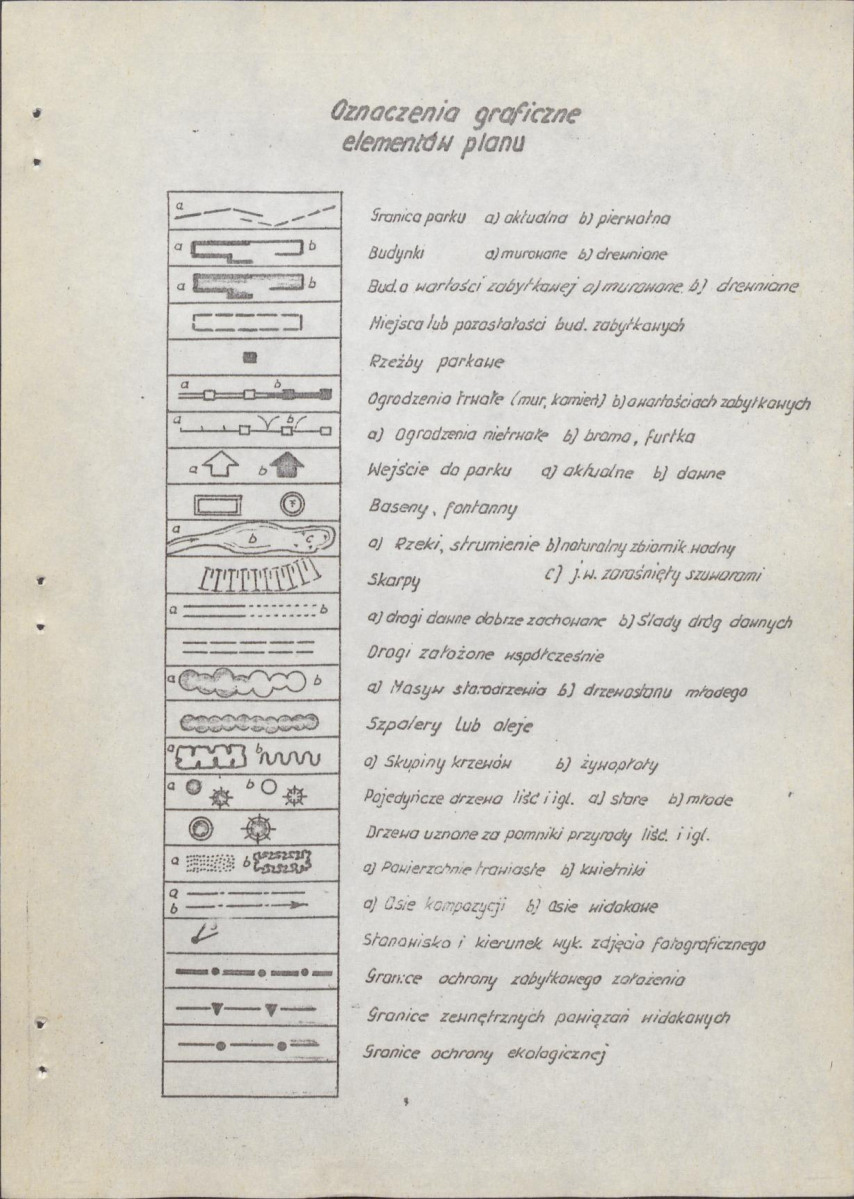 Oznaczenia graficzne
elementów planu
a
Granica parku a) aktualna b) pierwotna
a b
Budynki a) murowane b) drewniane
a b
Bud. o wartości zabytkowej a) murowane b) drewniane
Miejsca lub pozostałości bud. zabytkowych
Rzeźby parkowe
a b
Ogrodzenia trwałe (mur, kamień) b) o wartościach zabytkowych
a b
a) Ogrodzenia nietrwałe b) brama, furtka
a b
Wejście do parku a) aktualne b) dawne
F
Baseny, fontanny
a b c
a) Rzeki, strumienie b) naturalny zbiornik wodny
c) j.w. zarośnięty szuwarami
Skarpy
a b
a) drogi dawne dobrze zachowane b) Ślady dróg dawnych
Drogi założone współcześnie
a b
a) Masyw starodrzewia b) drzewostanu młodego
Szpalery lub aleje
a b
a) Skupiny krzewów b) żywopłoty
a b
Pojedyńcze drzewa liść i igl. a) stare b) młode
Drzewa uznane za pomniki przyrody liść. i igl.
a b
a) Powierzchnie trawiaste b) kwietniki
a
b
a) Osie kompozycji b) Osie widokowe
Stanowisko i kierunek wyk. zdjęcia fotograficznego
Granice ochrony zabytkowego założenia
Granice zewnętrznych powiązań widokowych
Granice ochrony ekologicznej